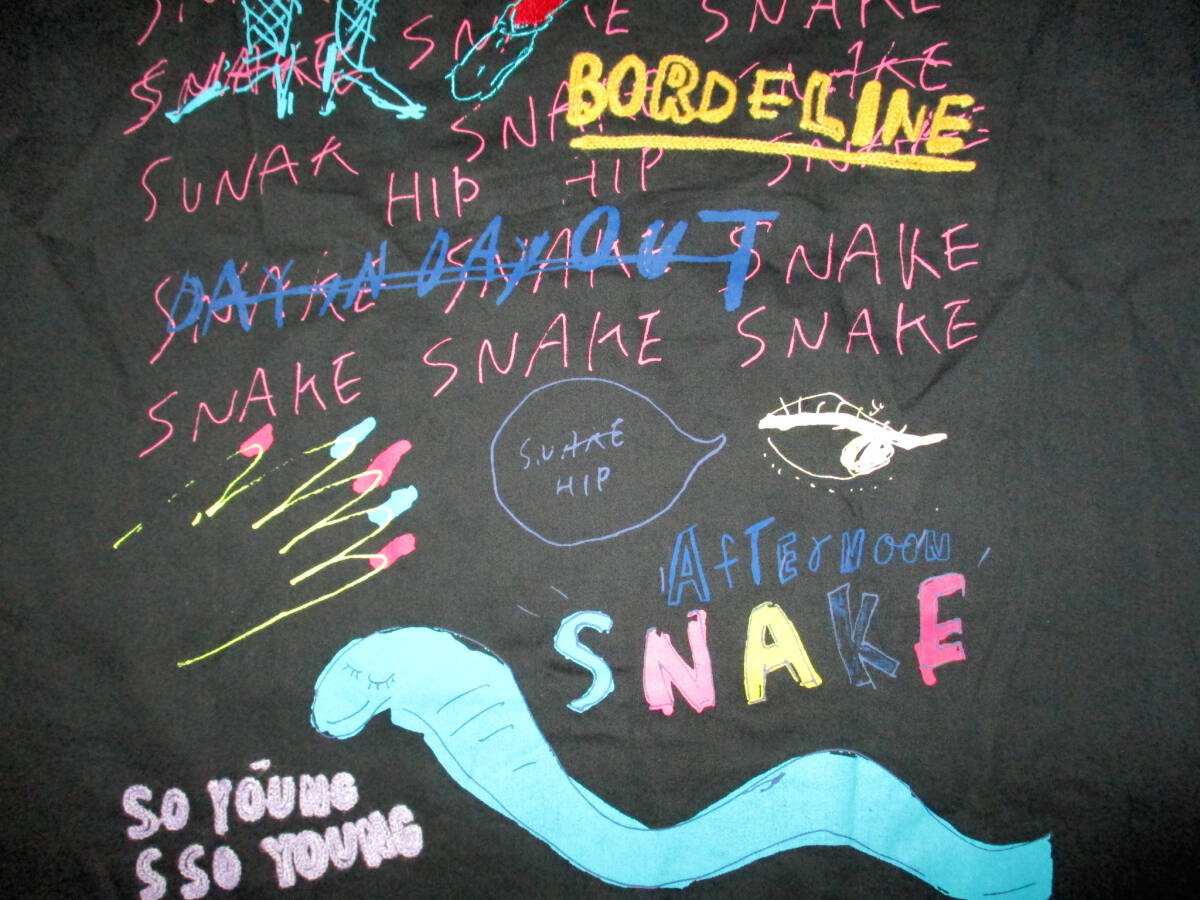 SNAKE SNAKE
SNAKE SNAKE SNAKE
BORDELINE
SUNAK SNAKE SNAKE
HIP HIP
SNAKE SNAKE SNAKE
DAY iN DAY OUT
SNAKE SNAKE SNAKE
SNAKE
HIP
AfTERNOON
SNAKE
SO YOUNG
SSO YOUNG